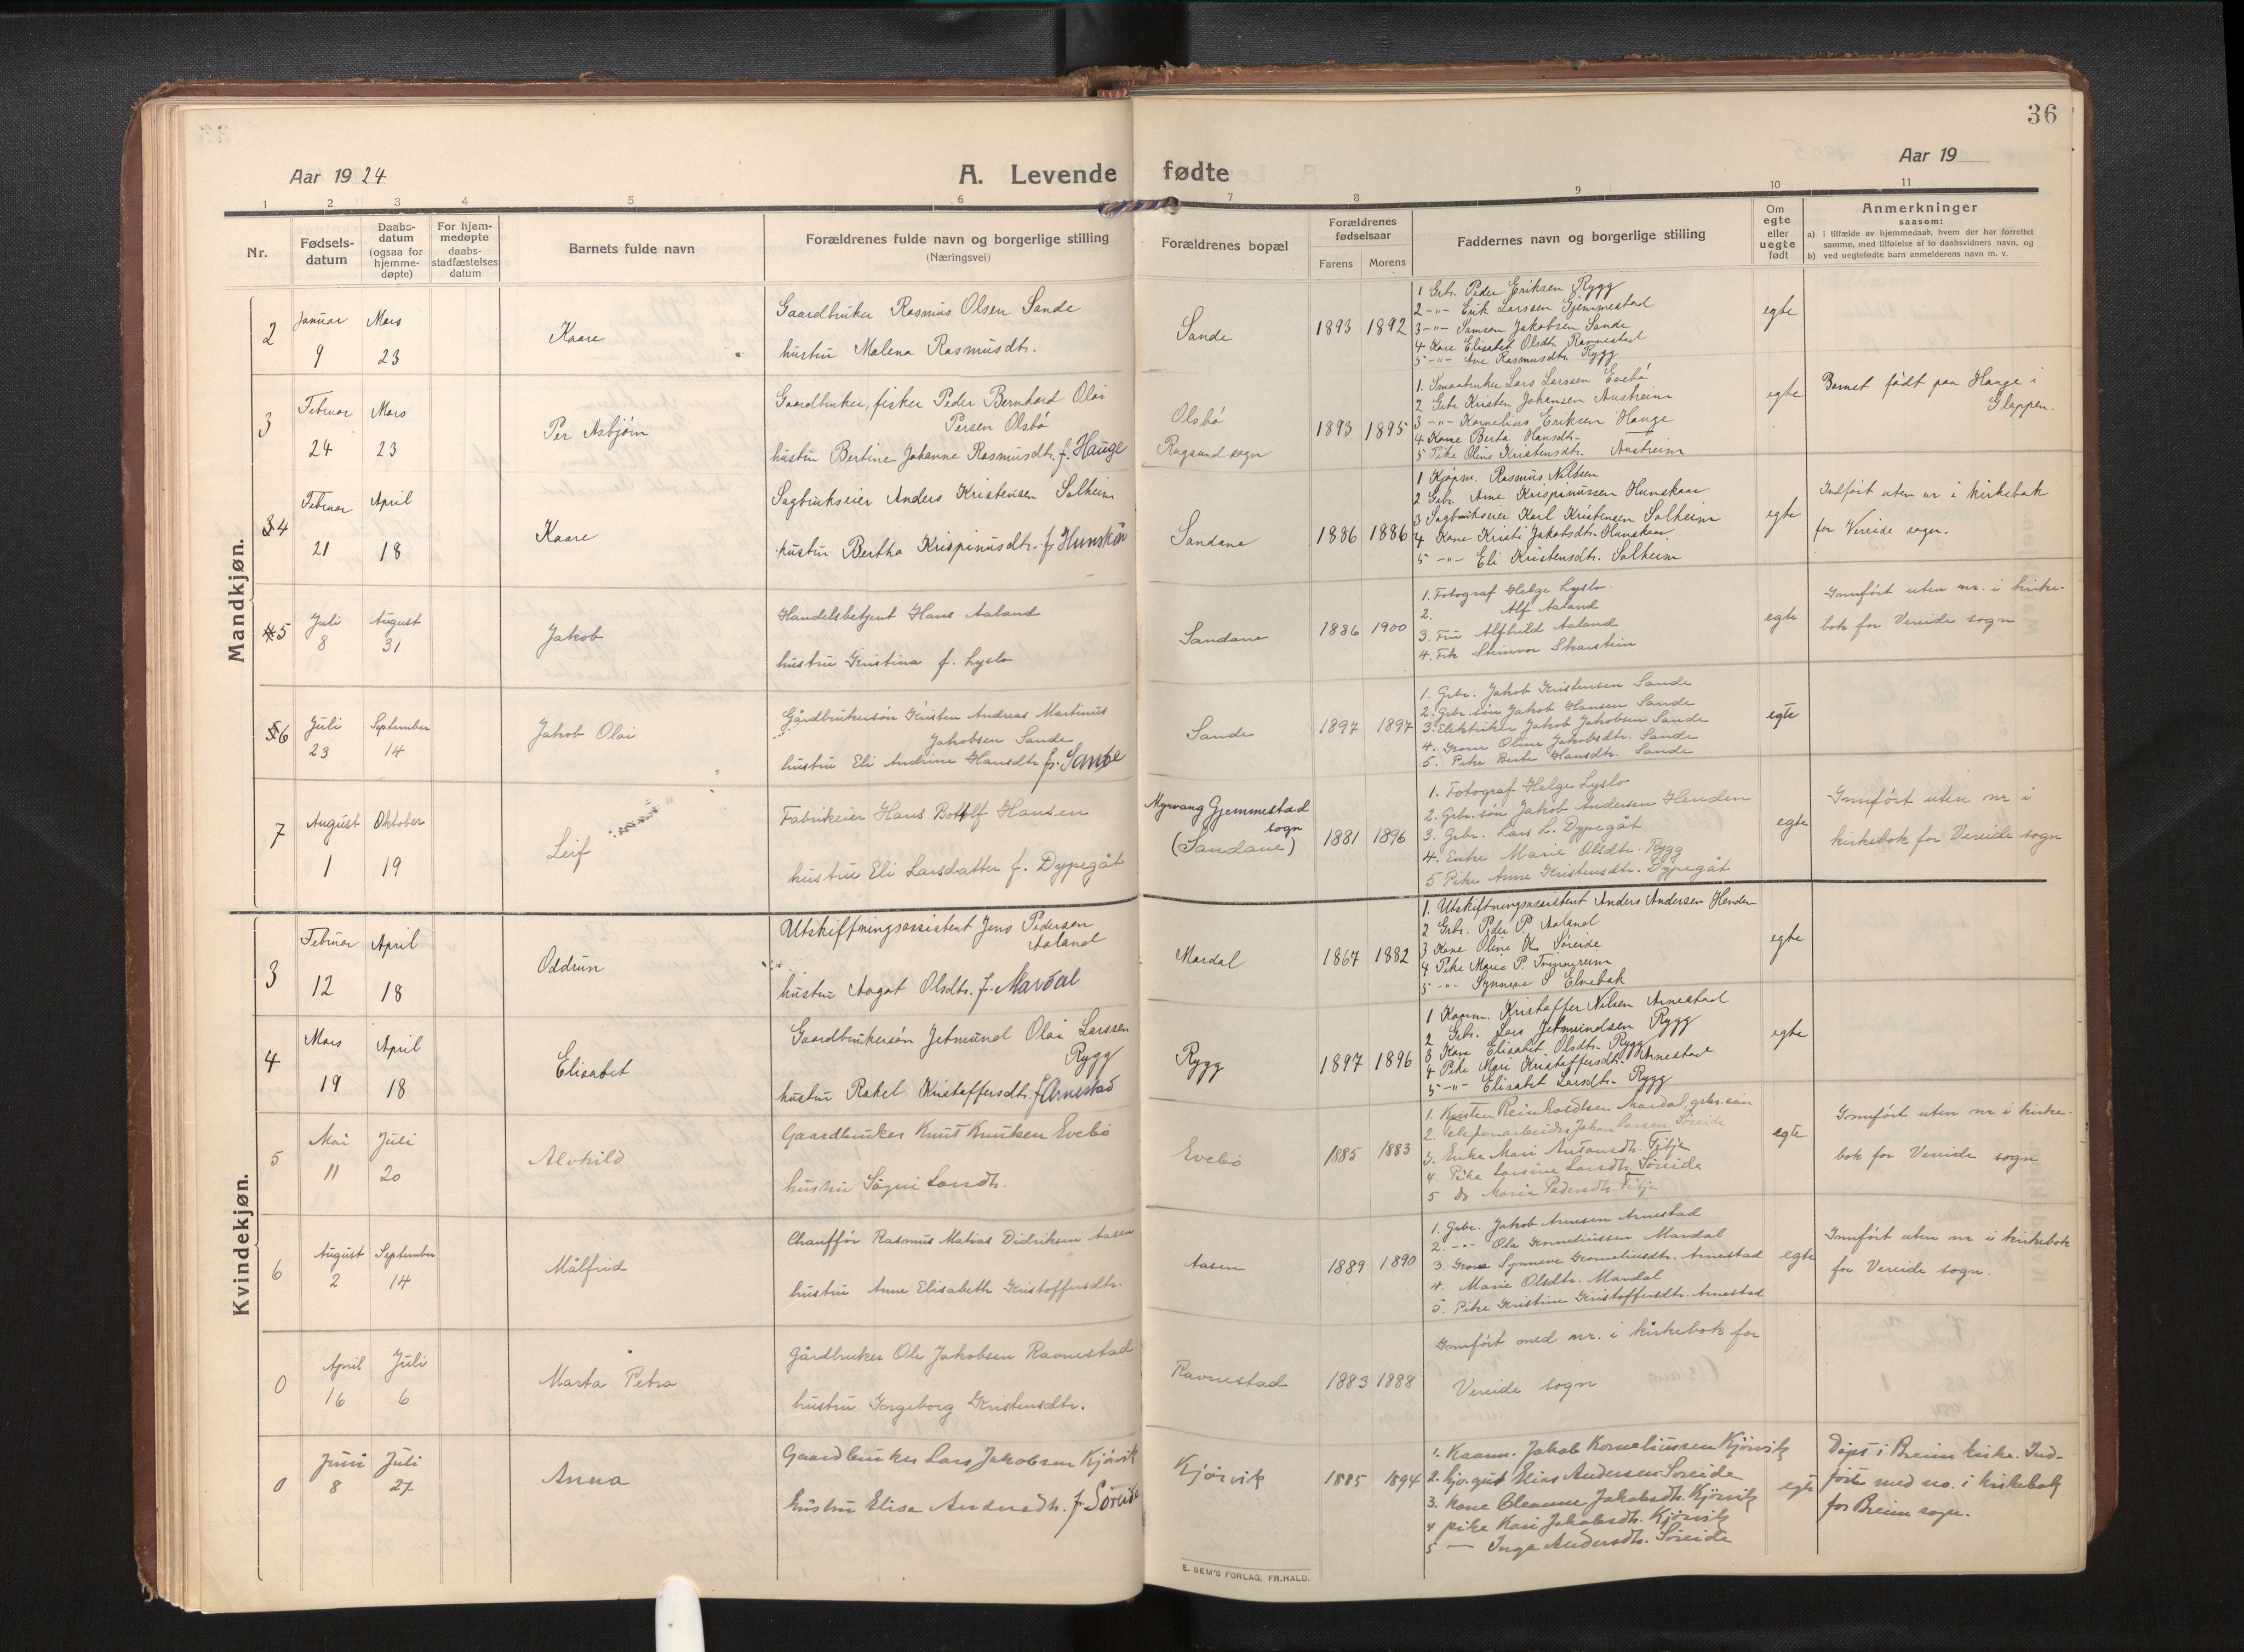 36
Aar 1924
A. Levende fødte
Aar 19
1 2 3 4 5 6 7 8 9 10 11
Nr.
Fødsels-
datum
Daabs-
datum
(ogsaa for
hjemme-
døpte)
For hjem-
medøpte
daabs-
stadfæstelses
datum
Barnets fulde navn
Forældrenes fulde navn og borgerlige stilling
(Næringsvei)
Forældrenes bopæl
Forældrenes
fødselsaar
Farens Morens
Faddernes navn og borgerlige stilling
Om
egte
eller
uegte
født
Anmerkninger
saasom:
a) i tilfælde av hjemmedaab, hvem der har forrettet
samme, med tilføielse af to daabsvidners navn, og
b) ved uegtefødte barn anmelderens navn m. v.
Mandkjøn.
2
Januar
9
Mars
23
Kaare
Gaardbruker Rasmus Olsen Sande
hustru Malena Rasmusdtr.
Sande
1893 1892
1 Grb. Peder Eriksen Rygg
2 -"- Erik Larssen Gjemmestad
3 -"- Samson Jakobsen Sande
4 Kone Elisabet Olsdtr. Ravnestad
5 -"- Ane Rasmusdtr. Rygg
egte
3
Februar
24
Mars
23
Per Asbjørn
Gaardbruker, fisker Peder Bernhard Olai
Persen Olsbö
hustru Bertine Johanne Rasmusdtr. f. Hauge
Olsbö
Rugsund sogn
1893 1895
1. Smaabruker Lars Larssen Evebö
2 Grb. Kristen Johansen Austreim
3 -"- Kornelius Eriksen Hauge
4 Kone Berta Hansdtr.
5 Pike Oline Kristensdtr. Austreim
egte
Barnet født paa Hauge i
Gloppen.
4
Februar
21
April
18
Kaare
Sagbrukseier Anders Kristensen Solheim
hustru Bertha Krispinusdtr. f. Hunskår
Sandane
1886 1886
1 Kjøpm. Rasmus Nilssen
2 Grb. Arne Krispinussen Hunskaar
3 Sagbrukseier Karl Kristensen Solheim
4 Kone Kristi Jakobsdtr. Hunskaar
5 -"- Eli Kristensdtr. Solheim
egte
Indført uten nr i kirkebok
for Vereide sogn.
5
Juli
8
August
31
Jakob
Handelsbetjent Hans Aaland
hustru Kristina f. Lyslo
Sandane
1886 1900
1. Fotograf Helge Lyslo.
2. Alf Aaland
3. Fru Alfhild Aaland
4. Frk Steinvor Skarstein
egte
Innført uten nr. i kirke-
bok for Vereide sogn
6
Juli
23
September
14
Jakob Olai
Gårdbrukersøn Kristen Andreas Martinus
Jakobsen Sande
hustru Eli Andrine Hansdtr f. Sande
Sande
1897 1897
1. Grbr. Jakob Kristensen Sande
2. Grbr. søn Jakob Hansen Sande
3. Elektriker Jakob Jakobsen Sande
4. Kone Oline Jakobsdtr. Sande
5. Pike Berte Hansdtr. Sande
egte
7
August
1
Oktober
19
Leif
Fabrikeier Hans Botolf Hansen
hustru Eli Larsdatter f. Dypegåt
Myrvang Gjemmestad
sogn
(Sandane)
1881 1896
1. Fotograf Helge Lyslo
2. Grbr. søn Jakob Andersen Henden
3. Grbr. Lars L. Dypegåt
4. Enke Marie Olsdtr. Rygg
5 Pike Anne Kristensdtr. Dypegåt
egte
Innført uten nr i
kirkebok for Vereide sogn
Kvindekjøn.
3
Februar
12
April
18
Oddrun
Utskiftningsassistent Jens Pedersen
Aaland
hustru Aagot Olsdtr. f. Mardal
Mardal
1867 1882
1. Utskiftningsassistent Anders Andersen Henden
2 Grb. Peder P. Aaland
3 Kone Oline K. Søreide
4 Pike Marie P. Tvinnereim
5 -"- Synneve S Elvebak
egte
4
Mars
19
April
18
Elisabet
Gaardbrukersøn Jetmund Olai Larssen
Rygg
hustru Rakel Kristoffersdtr. f Arnestad
Rygg
1897 1896
1 Kaarm. Kristoffer Nilsen Arnestad
2 Grb. Lars Jetmundsen Rygg
3 Kone Elisabet Olsdtr. Rygg
4 Pike Mari Kristoffersdtr. Arnestad
5 -"- Elisabet Larsdtr. Rygg
egte
5
Mai
11
Juli
20
Alvhild
Gaardbruker Knut Knutsen Evebö
hustru Sögni Larsdtr.
Evebö
1885 1883
1. Kristen Reinholdtsen Mardal grbr.søn
2. Telefonarbeider Johan Larsen Søreide
3. Enke Mari Antonsdtr. Fitje
4. Pike Larsine Larsdtr. Søreide
5 do Marie Pedersdtr. Fitje
egte
Innført uten nr i kirke-
bok for Vereide sogn
6
August
2
September
14
Målfrid
Chauffør Rasmus Matias Didriksen Aasen
hustru Anne Elisabeth Kristoffersdtr.
Aasen
1889 1890
1. Grbr. Jakob Arnesen Arnestad
2. -"- Ola Korneliussen Mardal
3. Kone Synneve Korneliusdtr. Arnestad
4. Marie Olsdtr. Mardal
5. Pike Kristine Kristoffersdtr. Arnestad
egte
Innført uten nr i kirkebok
for Vereide sogn.
0
April
16
Juli
6
Marta Petra
Gårdbruker Ole Jakobsen Ravnestad
hustru Ingeborg Kristensdtr.
Ravnestad
1883 1888
Innført med nr. i kirkebok for
Vereide sogn
0
Juni
8
Juli
27
Anna
Gaardbruker Lars Jakobsen Kjörvik
hustru Elisa Andersdtr. f. Söreide
Kjörvik
1885 1894
1. Kaarm. Jakob Korneliussen Kjörvik
2. Elias Andersen Søreide
3. Kone Jakobsdtr. Kjörvik
4 pike Kari Jakobsdtr. Kjörvik
5 — Inga Andersdtr. Søreide
egte
Döpt i Breim kirke. Ind-
fört med no. i kirkebok
for Breim sogn.
E. SEM'S FORLAG, FR.HALD.